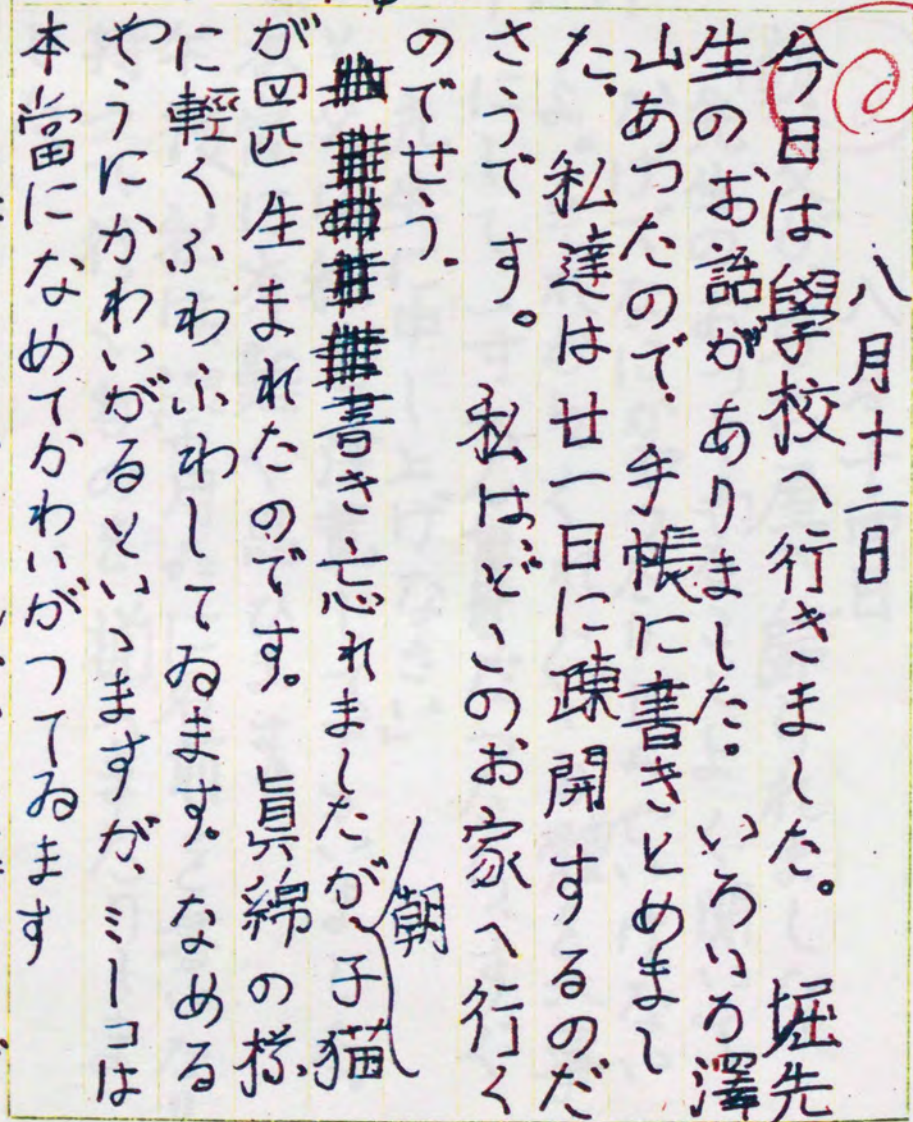 八月十二日
今日は學校へ行きました。 堀先
生のお話がありました。 いろいろ澤
山あつたので、手帳に書きとめまし
た。 私達は廿一日に疎開するのだ
さうです。 私はどこのお家へ行く
のでせう。
書き忘れましたが、朝子猫
が四匹生まれたのです。 眞綿の様
に輕くふわふわしてゐます。なめる
やうにかわいがるといいますが、ミーコは
本當になめてかわいがつてゐます